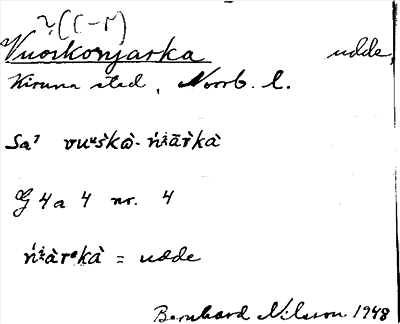 ~(C-M)
Vuoskonjarka udde,
Kiruna stad, Norrb. l.
Sa⁷ vuᵘškὼ-ńi̯ārkà
G 4a 4 nr. 4
ńi̯àrᵊkà = udde
Bernhard Nilsson 1948